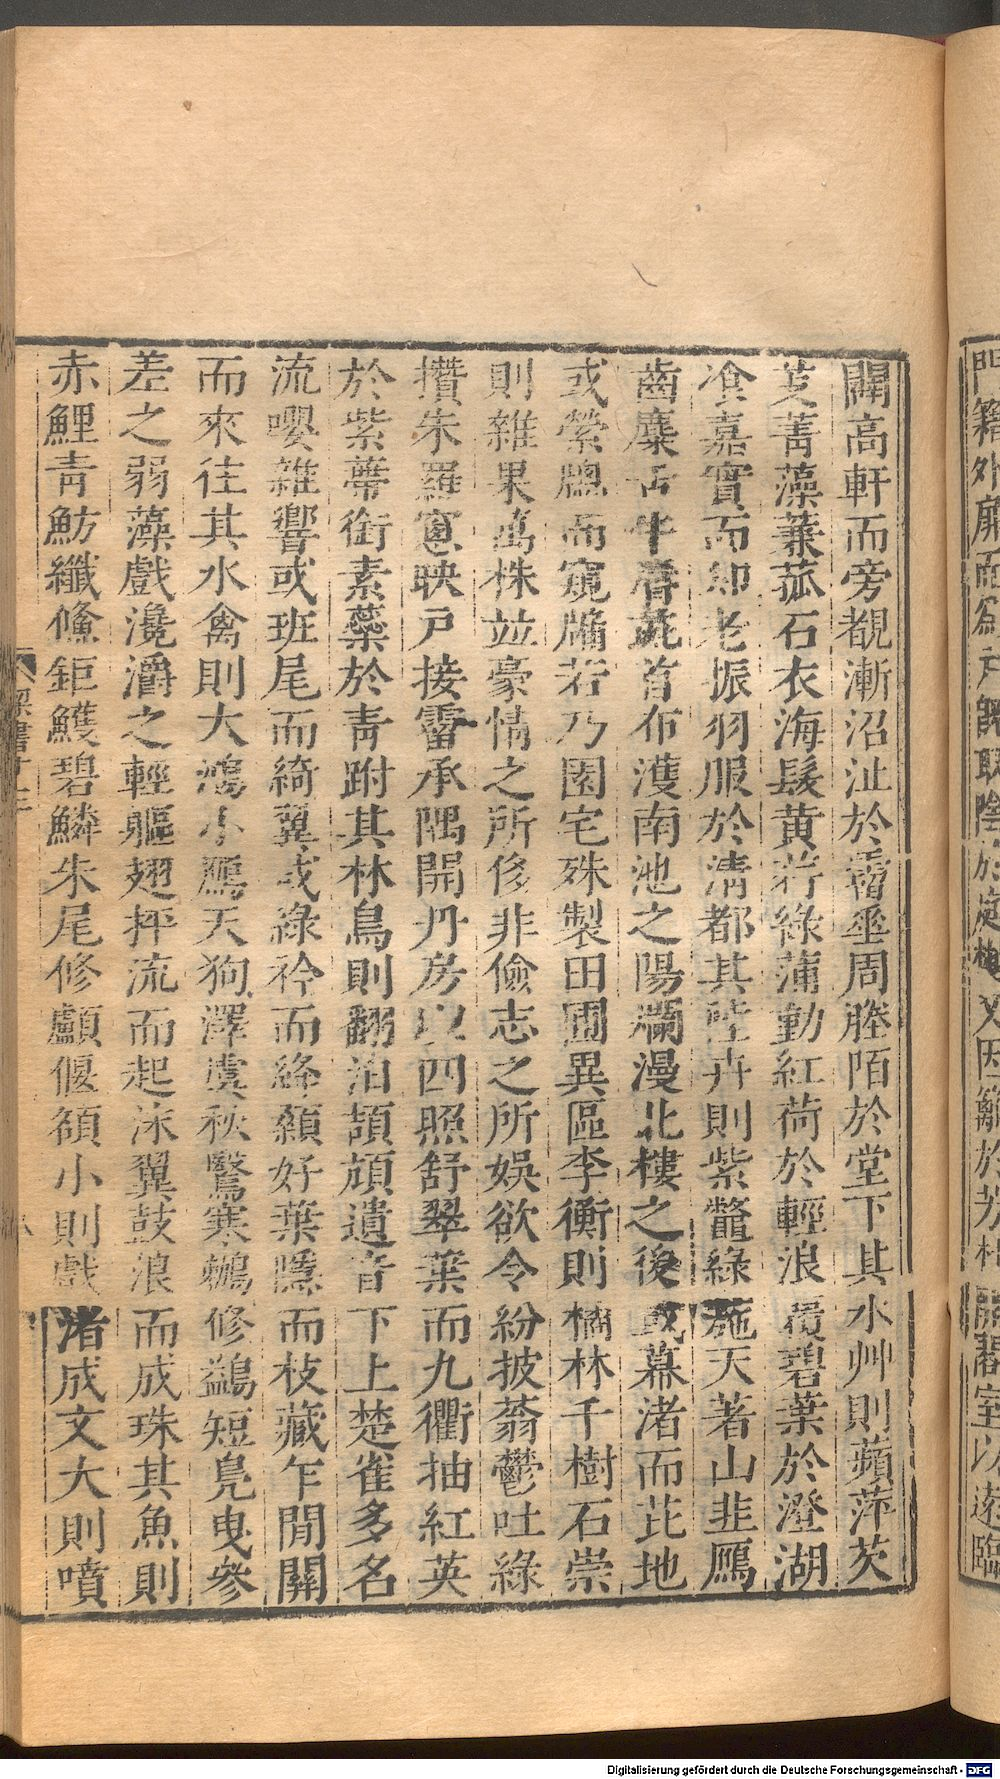 門籍外扉而爲戶旣取陰於庭樾又因籬於芳杜開閣室以遠臨
闢高軒而旁覩漸沼沚於霤垂周塍陌於堂下其水艸則蘋萍芡
芰菁藻蒹菰石衣海髮黃荇綠蒲動紅荷於輕浪覆碧葉於澄湖
飡嘉實而卻老振羽服於清都其陸卉則紫虌綠葹天著山韭鴈
齒麋舌牛脣彘首布濩南池之陽爛漫北樓之後或幕渚而芘地
或縈牕而窺牖若乃園宅殊製田圃異區李衡則橘林千樹石崇
則雜果萬株竝豪情之所侈非儉志之所娛欲令紛披蓊鬱吐綠
攢朱羅窻映戶接霤承隅開丹房以四照舒翠葉而九衢抽紅英
於紫蔕銜素蘂於青跗其林鳥則翻泊頡頏遺音下上楚雀多名
流嚶雜響或班尾而綺翼或綠衿而絳顙好葉隱而枝藏乍閒關
而來往其水禽則大鴻小鴈天狗澤虞秋鷖寒鶂修鷁短鳧曳參
差之弱藻戲瀺灂之輕軀翅抨流而起沫翼鼓浪而成珠其魚則
赤鯉青魴纖鯈鉅鱯碧鱗朱尾修顱偃額小則戲渚成文大則噴
梁書十三 八
Digitalisierung gefördert durch die Deutsche Forschungsgemeinschaft - DFG